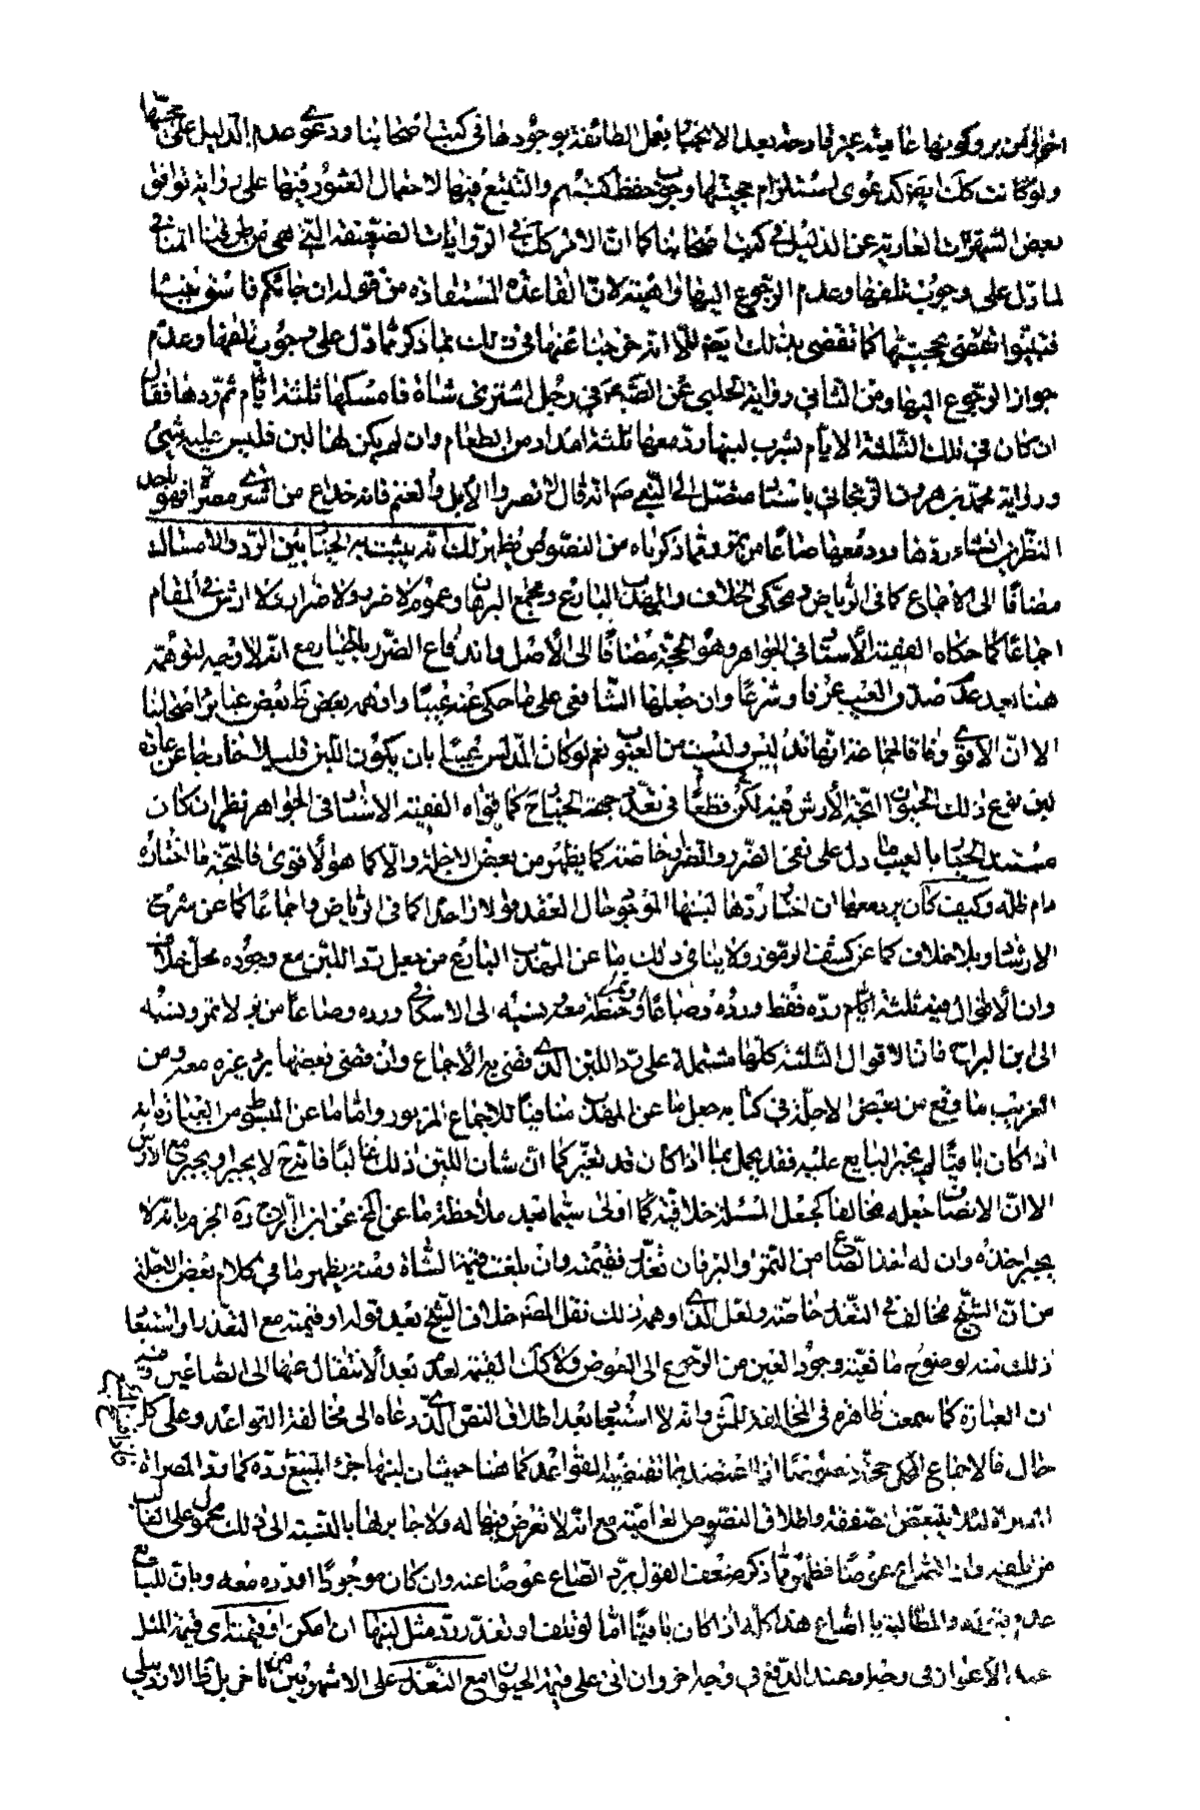 اخرى لمن بر وكونها عامية غير قادحة بعد الانجبار بعمل الطائفة بوجودها في كتب اصحابنا ودعوى عدم الدليل على حجيتها
ولو كانت كك ايضا كدعوى استلزام حجيتها وجوب حفظ كتبهم والتتبع فيها لاحتمال العثور فيها على رواية توافق
بعض الشهرات العارية عن الدليل في كتب اصحابنا كما ان الامر كك في الروايات الضعيفة التي هي من طرقنا المنافى
لما دل على وجوب تلفها وعدم الرجوع اليها واهية لان القاعدة المستفادة من قوله ان جائكم فاسق بنبا
فتبينوا تقضى بحجيتها كما تقضى بذلك ايضا الا انه خرجنا عنها في ذلك بما ذكر مما دل على وجوب تلفها وعدم
جواز الرجوع اليها ومن الثاني رواية الحلبي عن الصادق ع في رجل اشترى شاة فامسكها ثلثة ايام ثم ردها فقال
ان كان في تلك الثلثة الايام يشرب لبنها رد معها ثلثة امداد من الطعام وان لم يكن لها لبن فليس عليه شيئ
ورواية محمد بن هرون الزنجاني باسناد متصل الى النبي ص انه قال لا تصروا الابل والغنم فانه خداع من اشترى مصراة فهو باحد
النظرين ان شاء ردها ورد معها صاعا من تمر ومما ذكرناه من النصوص يظهر لك انه يثبت به الخيار بين الرد والامساك
مضافا الى الاجماع كما في الرياض ومحكى الخلاف والمهذب البارع ومجمع البرهان وعموم لا ضرر ولا ضرار ولا ارش في المقام
اجماعا كما حكاه الفقيه الاستاد في الجواهر وهو الحجة مضافا الى الاصل واندفاع الضرر بالخيار مع انه لا وجه لتوهمه
هنا بعد عدم صدق العيب عرفا وشرعا وان جعلها الشافعي على ما حكى عنه عيبا وان اوهمه بعض ظ بعض عبائر اصحابنا
الا ان الاقوى وفاقا لجماعة انها تدليس وليست من العيوب نعم لو كان المدلس عيبا بان يكون اللبن قليلا خارجا عن عادة
لبن نوع ذلك الحيوان اتجه الارش فيه لكن قطعا في تعدد جهة الخيار كما قواه الفقيه الاستاد في الجواهر نظر ان كان
مستند الخيار بالعيب ما دل على نفى الضرر والضرار خاصة كما يظهر من بعض الاجلة والا كما هو الاقوى فالمتجه ما اختاره
دام ظله وكيف كان يرد معها ان اختار ردها لبنها الموجود حال العقد قولا واحدا كما في الرياض واجماعا كما عن شرح
الارشاد وبلا خلاف كما عن كشف الرموز ولا ينافى ذلك ما عن المهذب البارع من جعل رد اللبن مع وجوده محل خلاف
وان الاقوال فيه ثلثة ايام رده فقط ورده وصاعا من حنطة وتمر معه نسبه الى الاسكافي ورده وصاعا من بر لا تمر ونسبه
الى ابن البراج فان الاقوال الثلثة كلها مشتملة على رد اللبن الذي قضى به الاجماع وان قضى بعضها برد غيره معه ومن
الغريب ما وقع من بعض الاجلة في كتابه جعل ما عن المهذب منافيا للاجماع المزبور واما ما عن المبسوط من العبارة انه
اذا كان باقيا لم يجبر البايع عليه فقد يحمل بما اذا كان قد تغير كما ان شان اللبن ذلك غالبا فانه ح لا يجبر او يجبر مع الارش
الا ان الانصاف جعله مخالفا كجعل المسئلة خلافية كما اولى سيما بعد ملاحظة ما عن الشيخ عن ابن البراج من الجزم بانه لا
يجبر اخذه وان له اخذ الصاع من التمر او البر فان تعذر فقيمته وان بلغت قيمة الشاة ومنه يظهر ما في كلام بعض الاجلة
من ان الشيخ مخالف في التعذر خاصة ولعل الذي اوهمه ذلك نقل المص خلاف الشيخ بعد قوله او قيمته مع التعذر او استبعا
ذلك منه لوضوح ما تعينه وجود العين من الرجوع الى العوض ولا كك القيمة بعد الانتقال عنها الى الصاعين وفيه
ان العبارة كما سمعت ظاهرة في المخالفة للمش وانه لا استبعاد بعد اطلاق النص الذي دعاه الى مخالفة القواعد وعلى كل
حال فالاجماع المحكى حجة خصوصا اذا اعتضد بما تقتضيه القواعد كما هنا حيث ان لبنها جزء المبيع فرده كما ترد المصراة
المصراة لئلا يتبعض الصفقة واطلاق النصوص العامية مع انه لا تعرض فيها له ولا جابر لها بالنسبة الى ذلك محمول على الغالب
من تلفه وان الصاع عوضا فظهر مما ذكر ضعف القول برد الصاع عوضا عنه وان كان موجودا او رده معه وبان للبايع
عدم قبوله والمطالبة بالصاع هذا كله اذا كان باقيا اما لو تلف او تعذر رد مثل لبنها ان امكن او قيمته اى قيمة المثل
عند الاعواز في وجه وعند الدفع في وجه اخر وان اتى على قيمة الحيوان مع التعذر على الاشهر بين من تاخر بل ظ الاردبيلي